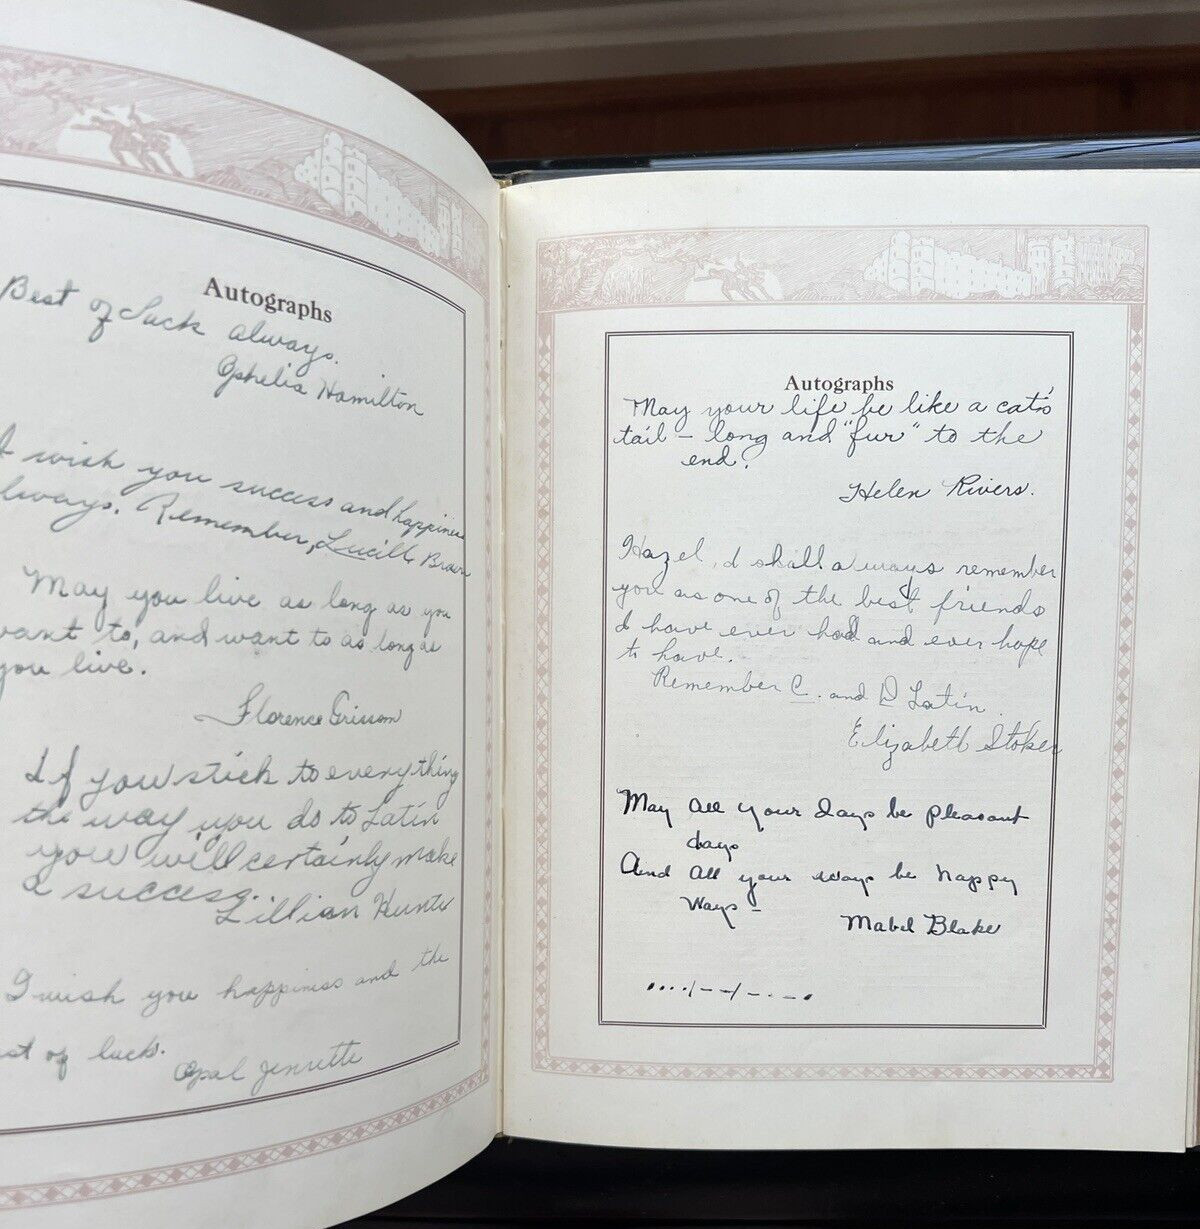 Autographs
Best of Luck always.
Ophelia Hamilton
I wish you success and happiness
always. Remember, Lucille Brown
May you live as long as you
want to, and want to as long as
you live.
Florence Grissom
If you stick to everything
the way you do to Latin
you will certainly make
a success.
Lillian Hunte
I wish you happiness and the
best of luck.
Opal Jenrette
Autographs
May your life be like a cat's
tail – long and "fur" to the
end.
Helen Rivers.
Hazel, I shall always remember
you as one of the best friends
I have ever had and ever hope
to have.
Remember C. and D Latin.
Elizabeth Stoker
May all your days be pleasant
days
And all your ways be happy
ways –
Mabel Blake
····/--/-·-·